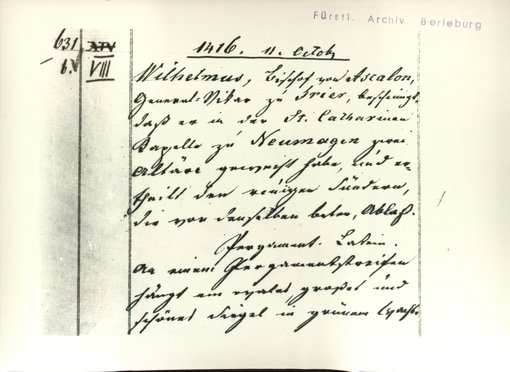 Fürstl. Archiv Berleburg
631 XIV
b. VIII
1416. 11. Octob.
Wilhelmus, Bischof von Ascalon,
General-Vikar zu Trier, bescheinigt,
daß er in der St. Catharinen
Kapelle zu Neumagen zwei
Altäre geweiht habe, und er-
theilt den reuigen Sündern,
die vor denselben beten, Ablaß.
Pergament. Latein.
An einem Pergamentstreifen
hängt ein ovales großes und
schönes Siegel in grünem Wachs.